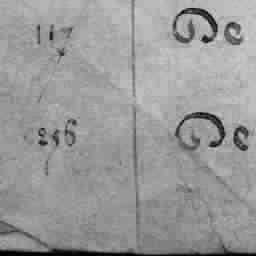 117 De
256 De